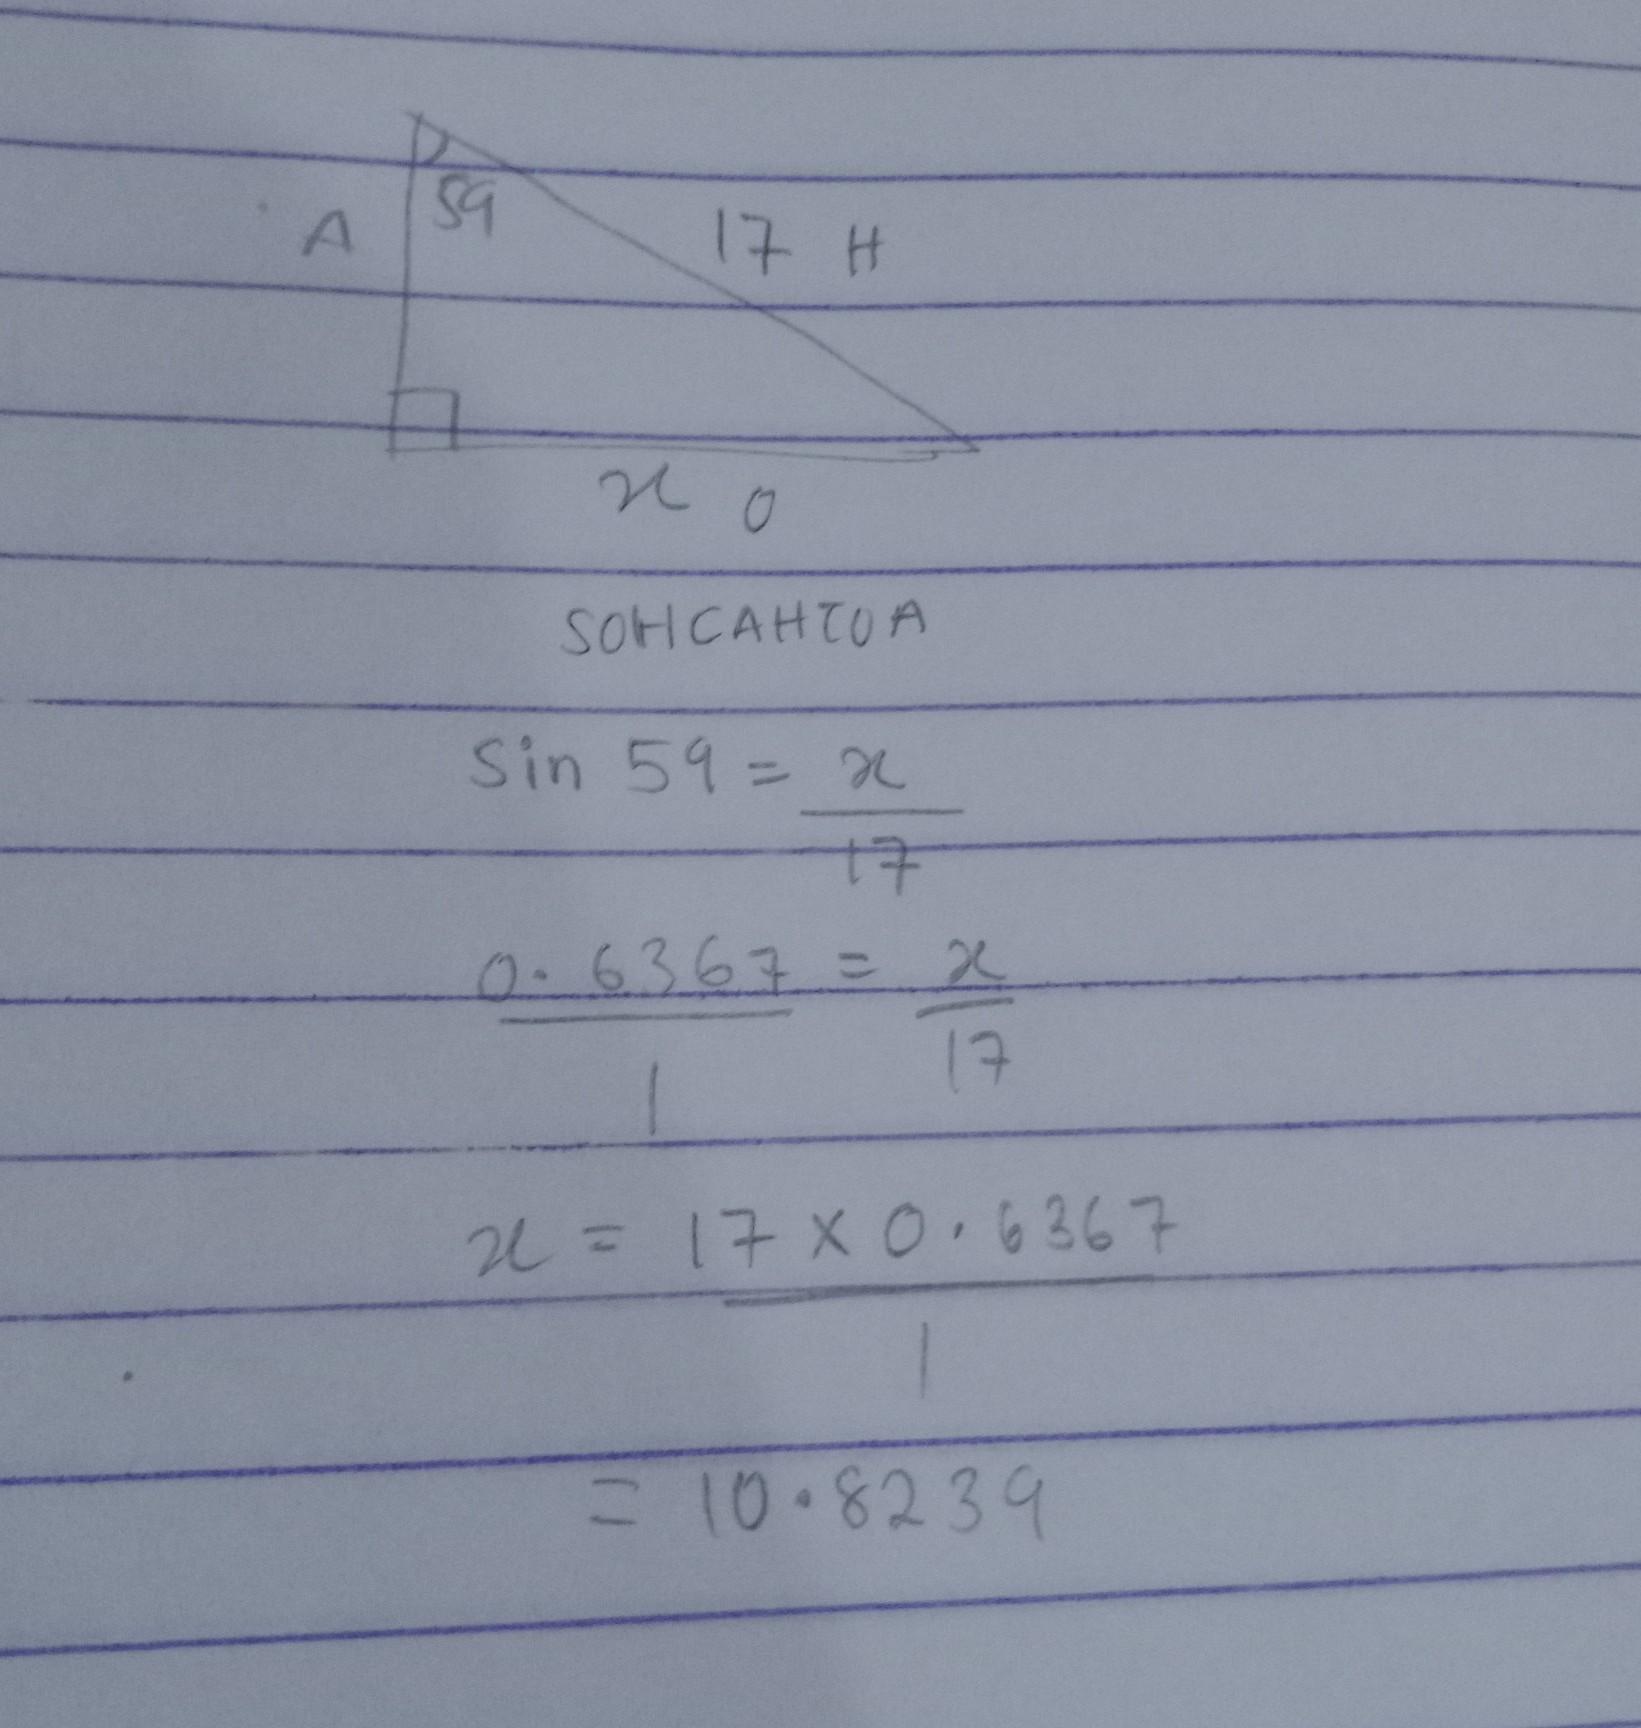 59
A
17 H
x 0
SOHCAHTOA
Sin 59 = x/17
0.6367/1 = x/17
x = 17 x 0.6367/1
= 10.8239